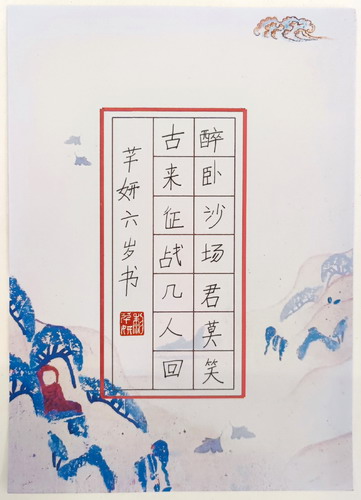 醉卧沙场君莫笑
古来征战几人回
芊妍六岁书